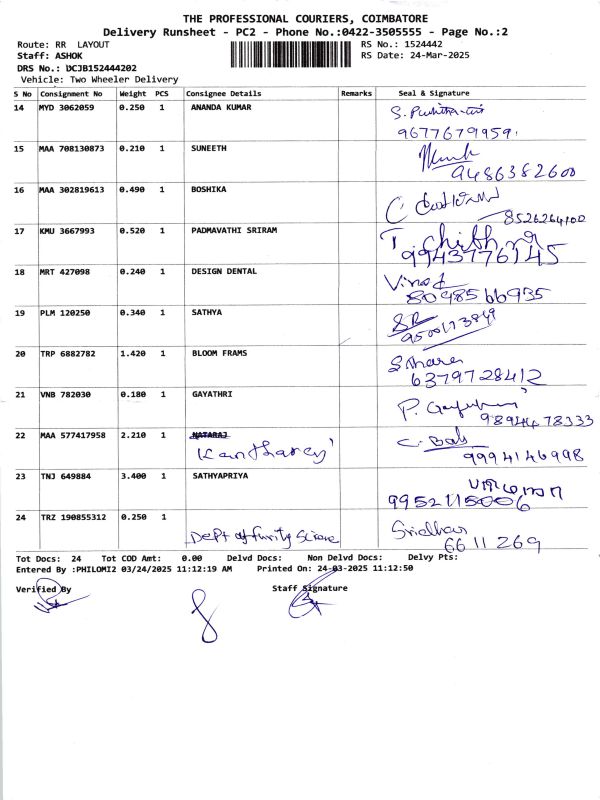 THE PROFESSIONAL COURIERS, COIMBATORE
Delivery Runsheet - PC2 - Phone No.:0422-3505555 - Page No.:2
Route: RR LAYOUT RS No.: 1524442
Staff: ASHOK RS Date: 24-Mar-2025
DRS No.: DCJB152444202
Vehicle: Two Wheeler Delivery
S No Consignment No Weight PCS Consignee Details Remarks Seal & Signature
14 MYD 3062059 0.250 1 ANANDA KUMAR
9677679959
15 MAA 708130873 0.210 1 SUNEETH
9486382600
16 MAA 302819613 0.490 1 BOSHIKA
8526264100
17 KMU 3667993 0.520 1 PADMAVATHI SRIRAM
9943776145
18 MRT 427098 0.240 1 DESIGN DENTAL Vinod
8098566935
19 PLM 120250 0.340 1 SATHYA
20 TRP 6882782 1.420 1 BLOOM FRAMS
6379728412
21 VNB 782030 0.180 1 GAYATHRI P. Gayathri
9894478333
22 MAA 577417958 2.210 1 NATARAJ C. Bab
9994146998
23 TNJ 649884 3.400 1 SATHYAPRIYA
9952115006
24 TRZ 190855312 0.250 1
Dept of Sridhar
6611269
Tot Docs: 24 Tot COD Amt: 0.00 Delvd Docs: Non Delvd Docs: Delvy Pts:
Entered By :PHILOMI2 03/24/2025 11:12:19 AM Printed On: 24-03-2025 11:12:50
Verified By Staff Signature